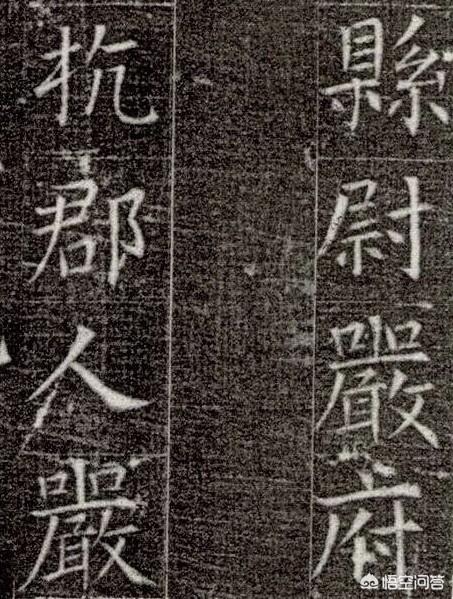 縣尉嚴府
杭郡人嚴
悟空问答